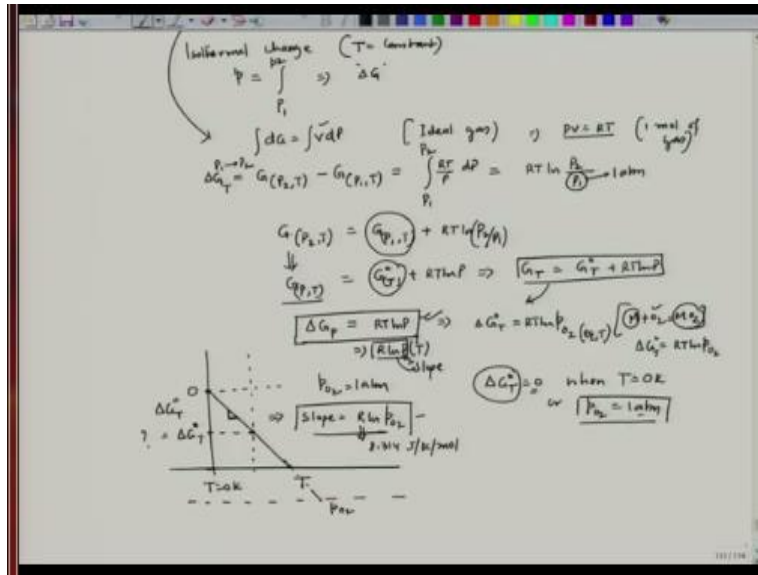 Isothermal change (T = constant)
P = ∫ P1 P2 => ΔG
∫dG = ∫VdP [Ideal gas) => PV = RT (1 mol of gas)
ΔG_T P1→P2 = G(P2,T) - G(P1,T) = ∫ P1 P2 RT/P dP = RT ln P2/P1 → 1 atm
G(P2,T) = G(P1,T) + RT ln(P2/P1)
⇓
G(P,T) = G°(T) + RT ln P => G_T = G°_T + RT ln P
ΔG_P = RT ln P => ΔG°_T = RT ln p_O2 (O2,T) [M + O2 = MO2]
=> R ln P (T) ΔG°_T = RT ln p_O2
Slope
p_O2 = 1 atm ΔG°_T = 0 when T = 0K
or p_O2 = 1 atm
0
ΔG°_T
? = ΔG°_T
=> Slope = R ln p_O2
8.314 J/K/mol
T = 0K T
p_O2